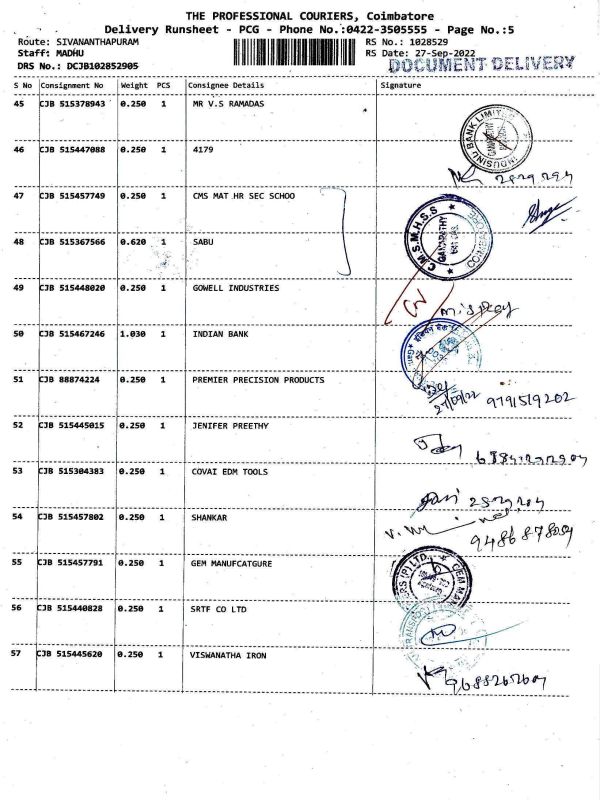 THE PROFESSIONAL COURIERS, Coimbatore
Delivery Runsheet - PCG - Phone No.:0422-3505555 - Page No.:5
Route: SIVANANTHAPURAM RS No.: 1028529
Staff: MADHU RS Date: 27-Sep-2022
DRS No.: DCJB102852905 DOCUMENT DELIVERY
S No Consignment No Weight PCS Consignee Details Signature
45 CJB 515378943 0.250 1 MR V.S RAMADAS
INDUSIND BANK LIMITED
46 CJB 515447088 0.250 1 4179
47 CJB 515457749 0.250 1 CMS MAT HR SEC SCHOO
C M S M.H.S.S
GANAPATHY
48 CJB 515367566 0.620 1 SABU
49 CJB 515448020 0.250 1 GOWELL INDUSTRIES
50 CJB 515467246 1.030 1 INDIAN BANK
51 CJB 88874224 0.250 1 PREMIER PRECISION PRODUCTS
27/09/22 9791519202
52 CJB 515445015 0.250 1 JENIFER PREETHY
53 CJB 515304383 0.250 1 COVAI EDM TOOLS
54 CJB 515457802 0.250 1 SHANKAR
55 CJB 515457791 0.250 1 GEM MANUFCATGURE
56 CJB 515440828 0.250 1 SRTF CO LTD
57 CJB 515445620 0.250 1 VISWANATHA IRON